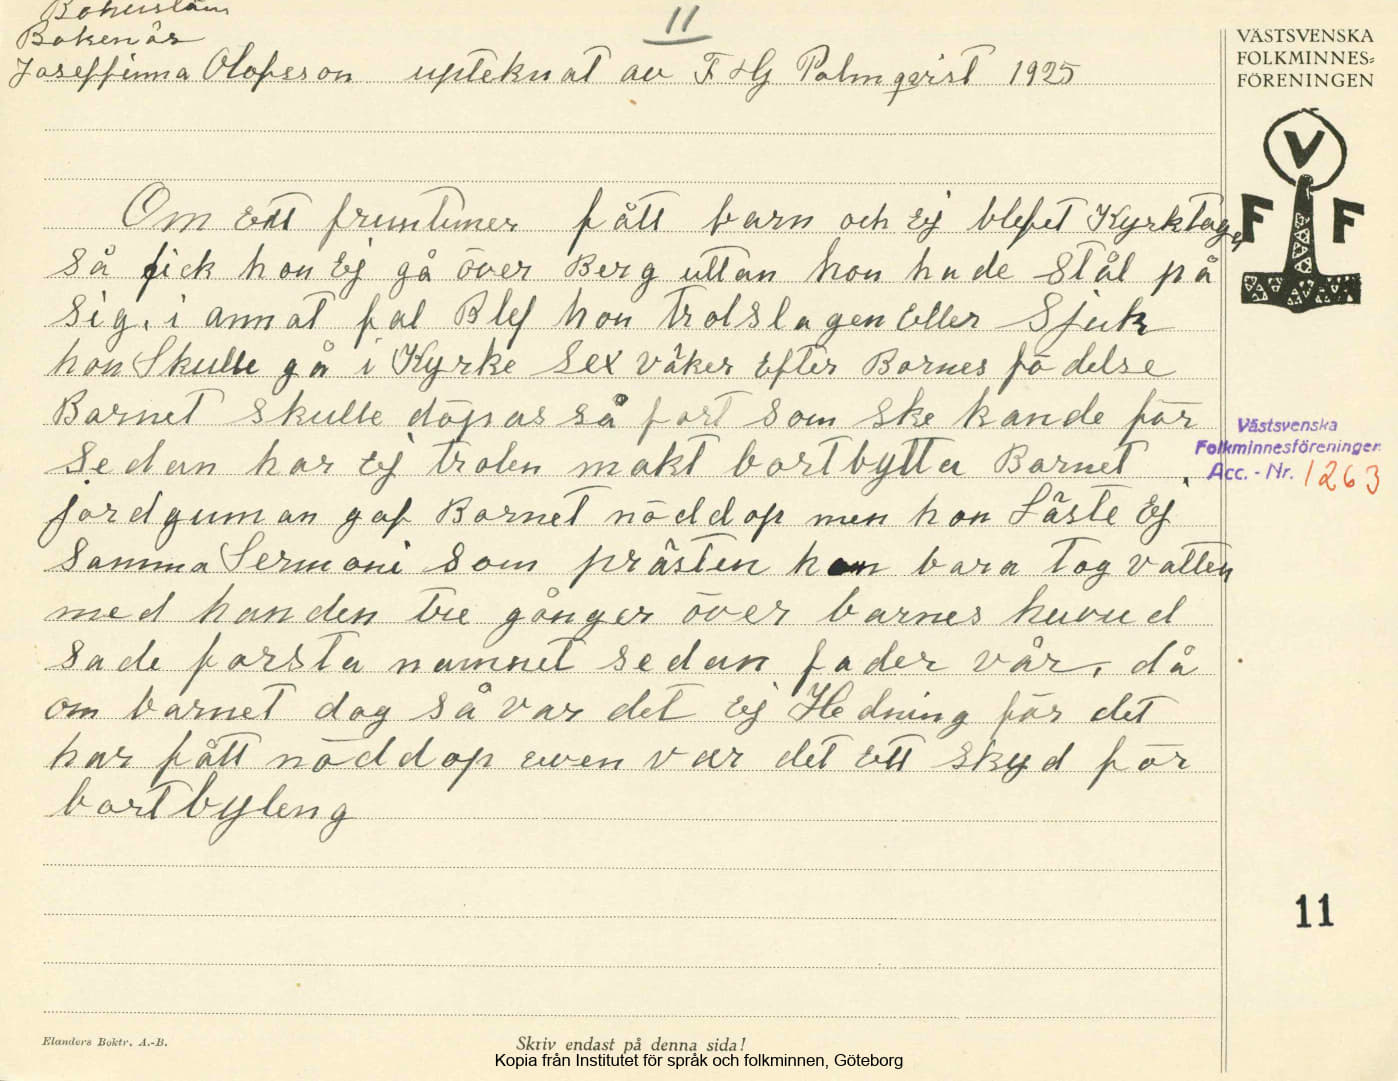 Bohuslän
Bokenäs
11
Joseffinna Olofsson upteknat av F & G Palmqvist 1925
VÄSTSVENSKA
FOLKMINNES=
FÖRENINGEN
V
F F
Om Ett fruntimer fått barn och Ej blefet Kyrktagen
så fick hon Ej gå över Berg uttan hon hade stål på
sig. i annat fal Blef hon trolslagen Eller Sjuk
hon Skulle gå i Kyrke sex väker Efter Barnes födelse
Barnet skulle döpas så fort som ske kande för
sedan har Ej trolen makt bortbytta Barnet
jordguman gaf Barnet nöddop men hon Läste Ej
samma Sermoni som prästen hon bara tog vatten
med handen tre gånger över barnes huvud
sade forsta namnet sedan fader vår. då
om barnet dog så var det Ej Hedning för det
har fått nöddop even var det Ett skyd för
bortbyteng
Västsvenska
Folkminnesföreningen
Acc. - Nr. 1263
11
Elanders Boktr. A.-B.
Skriv endast på denna sida!
Kopia från Institutet för språk och folkminnen, Göteborg